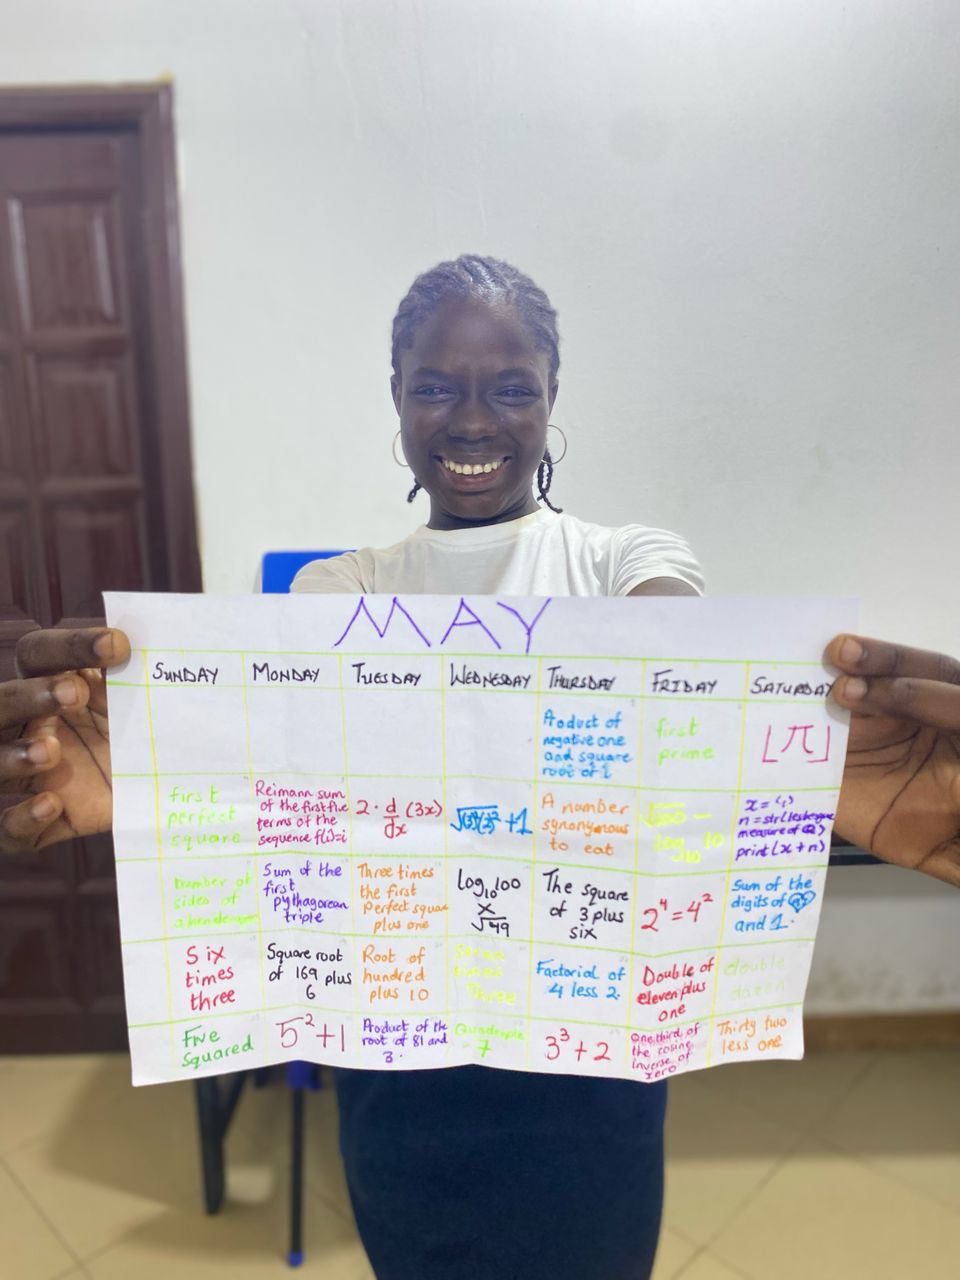 MAY
SUNDAY MONDAY TUESDAY WEDNESDAY THURSDAY FRIDAY SATURDAY
Product of
negative one
and square
root of i
first
prime
⌊π⌋
first
perfect
square
Reimann sum
of the first five
terms of the
sequence f(i)=i
2 · d/dx (3x)
+1
A number
synonymous
to eat
log₁₀ 10
x = '1'
n = str(lesbegue
measure of Q)
print(x + n)
number of
sides of
a hendecagon
Sum of the
first
pythagorean
triple
Three times
the first
Perfect square
plus one
log₁₀100
x
√49
The square
of 3 plus
six
2⁴ = 4²
Sum of the
digits of
and 1.
Six
times
three
Square root
of 169 plus
6
Root of
hundred
plus 10
Seven
times
Three
Factorial of
4 less 2.
Double of
eleven plus
one
double
dozen
Five
squared
5²+1
Product of the
root of 81 and
3.
Quadruple
7
3³ + 2
One third of
the cosine
inverse of
zero
Thirty two
less one